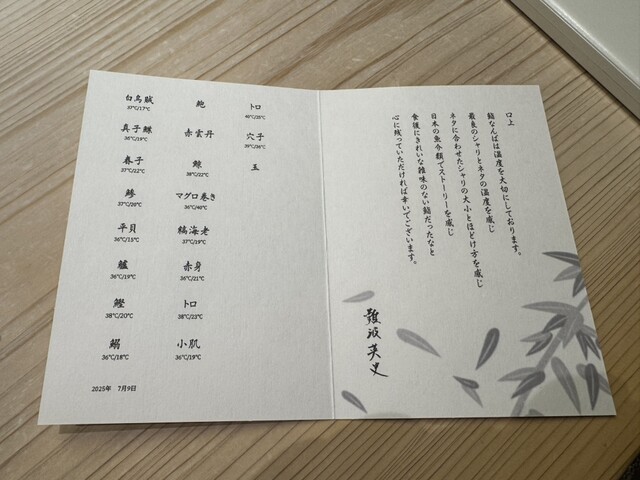 白烏賊
37℃/17℃
真子鰈
36℃/19℃
春子
37℃/22℃
鯵
37℃/20℃
平貝
36℃/15℃
鱸
36℃/19℃
鰹
38℃/20℃
36℃/18℃
鮑
赤雲丹
38℃/22℃
マグロ巻き
36℃/40℃
縞海老
37℃/19℃
赤身
36℃/21℃
トロ
38℃/23℃
小肌
36℃/19℃
トロ
穴子
玉
2025年 7月9日
口上
鮨なんばは温度を大切にしております。
最良のシャリとネタの温度を感じ
ネタに合わせたシャリの大小とほどけ方を感じ
日本の魚介類でストーリーを感じ
食後にきれいな雑味のない鮨だったなと
心に残っていただければ幸いでございます。
難波英史